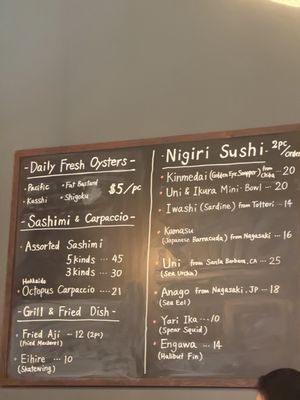 - Daily Fresh Oysters -
• Pacific • Fat Bastard
• Kusshi • Shigoku $5/pc
Sashimi & Carpaccio
• Assorted Sashimi
5 kinds ... 45
3 kinds ... 30
Hokkaido
• Octopus Carpaccio .... 21
- Grill & Fried Dish -
• Fried Aji - 12 (2pc)
(Fried Mackerel)
• Eihire ... 10
(Skatewing)
• Nigiri Sushi • 2pc/order
• Kinmedai (Golden Eye Snapper) from Chiba - 20
• Uni & Ikura Mini-Bowl - 20
• Iwashi (Sardine) from Tottori - 14
• Kamasu
(Japanese Barracuda) from Nagasaki - 16
• Uni from Santa Barbara, CA - 25
(Sea Urchin)
• Anago from Nagasaki, JP - 18
(Sea Eel)
• Yari Ika ... 10
(Spear Squid)
• Engawa - 14
(Halibut Fin)